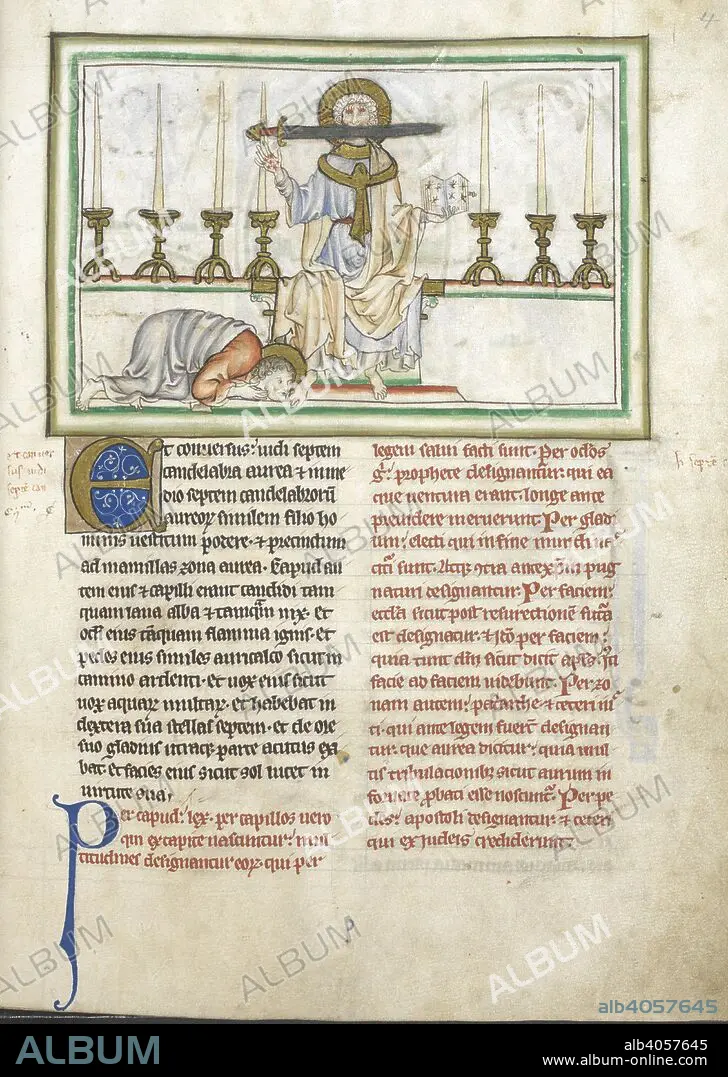 4
Et conversus: vidi septem
candelabra aurea et in me
dio septem candelabrorum
aureorum similem filio ho
minis vestitum podere· et precinctum
ad mamillas zona aurea· Caput au
tem eius et capilli erant candidi tam
quam lana alba et tamquam nix· et
oculi eius tamquam flamma ignis· et
pedes eius similes auricalco sicut in
camino ardenti· et vox eius sicut
vox aquarum multarum· et habebat in
dextera sua stellas septem· et de ore
suo gladius utraque parte acutus exi
bat· et facies eius sicut sol lucet in
virtute sua·
Per capud: lex· per capillos vero
qui ex capite nascuntur: mul
titudines designantur eorum· qui per
legem salvi facti sunt· Per oculos
prophete designantur: qui ea
que ventura erant: longe ante
previdere meruerunt· Per gladi
um: electi qui in fine mundi
sunt· Atque contra antexpm pug
naturi designantur· Per faciem:
ecclesia sicut post resurectionem futura
est designatur· et ideo per faciem:
quia tunc deum sicut dicit apostolus
facie ad faciem videbunt· Per zo
nam autem: patriarche et ceteri iusti
qui ante legem fuerunt designan
tur· que aurea dicitur: quia mul
tis tribulationibus sicut aurum in
fornace probati esse noscuntur· Per pe
des: apostoli designantur et ceteri
qui ex iudeis crediderunt·
ALBUM
alb4057645
ALBUM
alb4057645
www.album-online.com